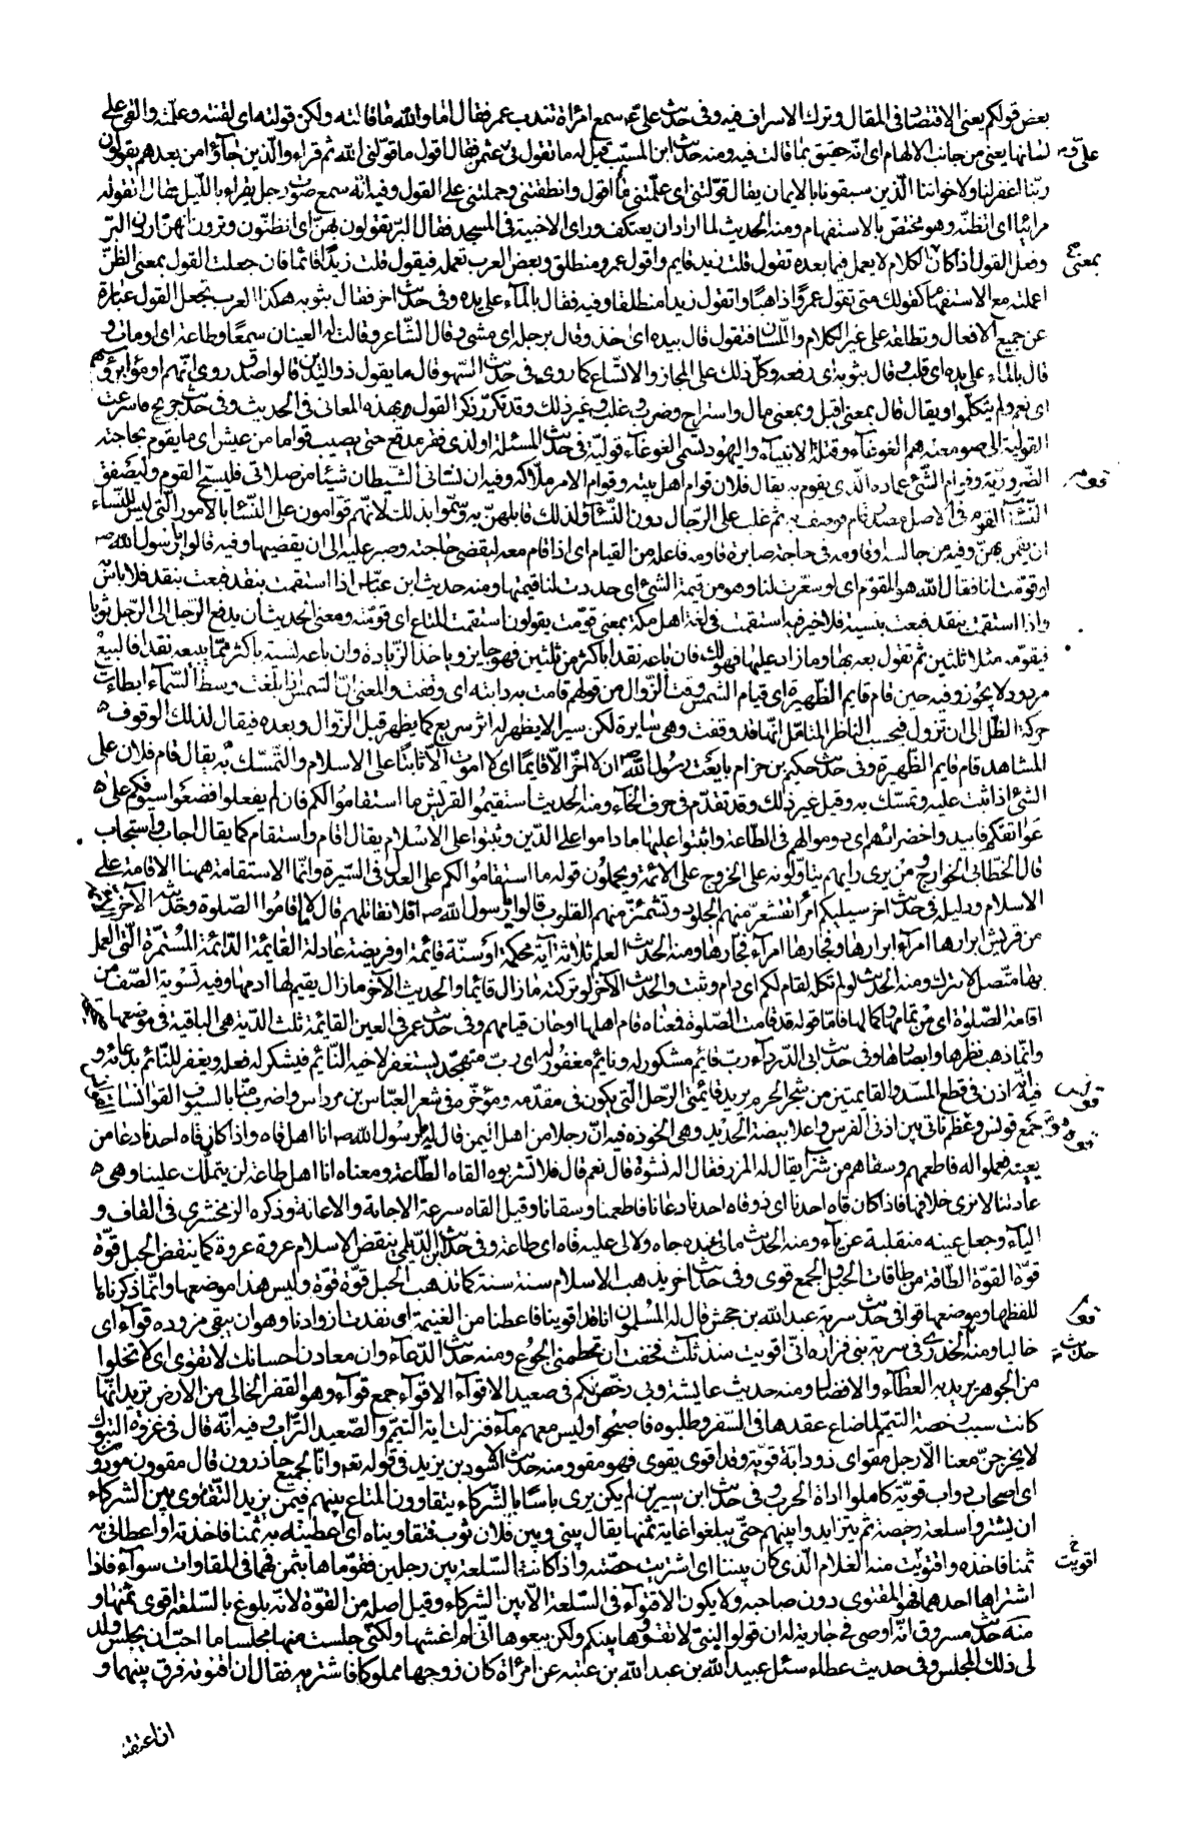 بعض قولكم يعنى الاقتصاد فى المقال وترك الاسراف فيه وفى حديث على ع سمع امرأة تندب عمر فقال اما والله ما قالته ولكن قولته اى لقنته وعلمته والقى على
لسانها يعنى من جانب الالهام اى انه حقيق بما قالت فيه ومنه حديث ابن المسيب قيل له ما تقول فى عثمن فقال اقول ما قولنى الله ثم قراء والذين جاؤا من بعدهم يقولون
ربنا اغفر لنا ولاخواننا الذين سبقونا بالايمان يقال قولتنى اى علمتنى ما اقول وانطقتنى وحملتنى على القول وفيه انه سمع صوت رجل يقراء بالليل فقال اتقوله
مرائيا اى اتظنه وهو مختص بالاستفهام ومنه الحديث لما اراد ان يعتكف وراى الاخبية فى المسجد فقال البر تقولون بهن اى اتظنون وترون انهن اردن البر
وفعل القول اذا كان الكلام لا يعمل فيما بعده تقول قلت زيد قايم واقول عمرو منطلق وبعض العرب تعمله فيقول قلت زيدا قائما فان جعلت القول بمعنى الظن
اعملته مع الاستفهام كقولك متى تقول عمروا ذاهبا واتقول زيدا منطلقا وفيه فقال بالمآء على يده وفى حديث اخر فقال بثوبه هكذا العرب تجعل القول عبارة
عن جميع الافعال وتطلقه على غير الكلام واللسان فتقول قال بيده اى اخذ وقال برجله اى مشى وقال الشاعر وقالت له العينان سمعا وطاعة اى اومات و
قال بالماء على يده اى قلب وقال بثوبه اى رفعه وكل ذلك على المجاز والاتساع كما روى فى حديث السهو قال ما يقول ذو اليدين قالوا صدق روى انهم اومؤا برؤسهم
اى نعم ولم يتكلموا ويقال قال بمعنى اقبل وبمعنى مال واستراح وضرب وغلب وغير ذلك وقد تكرر ذكر القول بهذه المعانى فى الحديث وفى حديث جريج فاسرعت
القولية الى صومعته هم الغوغآء وقتلة الانبيآء واليهود تسمى الغوغآء قولية فى حديث المسئلة او لذى فقر مدقع حتى يصيب قواما من عيش اى ما يقوم بحاجته
الضرورية وقوام الشئ عماده الذى يقوم به يقال فلان قوام اهل بيته وقوام الامر ملاكه وفيه ان نسانى الشيطان شيئا من صلاتى فليسبح القوم وليصفق
النسآء القوم فى الاصل مصدر قام فوصف به ثم غلب على الرجال دون النسآء ولذلك قابلهن به وسموا بذلك لانهم قوامون على النسآء بالامور التى ليس للنساء
ان يقمن بهن وفيه من جالسه او قاومه فى حاجته صابره قاومه فاعله من القيام اى اذا قام معه ليقضى حاجته وصبر عليه الى ان يقضيها وفيه قالوا يا رسول الله ص
لو قومت لنا فقال الله هو المقوم اى لو سعرت لنا وهو من قيمة الشئ اى حددت لنا قيمتها ومنه حديث ابن عباس اذا استقمت بنقد فبعت بنقد فلا باس
واذا استقمت بنقد فبعت بنسية فلا خير فيه استقمت فى لغة اهل مكة بمعنى قومت يقولون استقمت المتاع اى قومته ومعنى الحديث ان يدفع الرجل الى الرجل ثوبا
فيقومه مثلا ثلثين ثم تقول بعه بها وما زاد عليها فهو لك فان باعه نقدا باكثر من ثلثين فهو جايز وياخذ الزيادة وان باعه نسية باكثر مما يبيعه نقدا فالبيع
مردود لا يجوز وفيه حين قام قايم الظهيرة اى قيام الشمس وقت الزوال من قولهم قامت به دابته اى وقفت والمعنى ان الشمس اذا بلغت وسط السمآء ابطاءت
حركة الظل الى ان تزول فيحسب الناظر المتامل انها قد وقفت وهى سايرة لكن سيرا لا يظهر له اثر سريع كما يظهر قبل الزوال وبعده فيقال لذلك الوقوف
المشاهد قام قايم الظهيرة وفى حديث حكيم بن حزام بايعت رسول الله ص ان لا اخر الا قايما اى لا اموت الا ثابتا على الاسلام والتمسك به يقال قام فلان على
الشئ اذا ثبت عليه وتمسك به وقيل غير ذلك وقد تقدم فى حرف الخآء ومنه الحديث استقيموا لقريش ما استقاموا لكم فان لم يفعلوا فضعوا سيوفكم على
عواتقكم فابيدوا خضراءهم اى دوموا لهم فى الطاعة واثبتوا عليها ما داموا على الدين وثبتوا على الاسلام يقال اقام واستقام كما يقال اجاب واستجاب
قال الخطابى الخوارج ومن يرى رايهم يتاولونه على الخروج على الائمة ويحملون قوله ما استقاموا لكم على العدل فى السيرة وانما الاستقامة ههنا الاقامة على
الاسلام ودليله فى حديث اخر سيليكم امرآء تقشعر منهم الجلود وتشمئز منهم القلوب قالوا يا رسول الله ص افلا نقاتلهم قال لا ما اقاموا الصلوة وحديثه الآخر الائمة
من قريش ابرارها امرآء ابرارها وفجارها امرآء فجارها ومنه الحديث العلم ثلاثة آية محكمة او سنة قائمة او فريضة عادلة القائمة الدائمة المستمرة التى العمل
بها متصل لا يترك ومنه الحديث لو لم تكله لقام لكم اى دام وثبت والحديث الآخر لو تركته ما زال قائما والحديث الآخر ما زال يقيم لها ادمها وفيه تسوية الصف من
اقامة الصلوة اى من تمامها وكمالها فاما قوله قد قامت الصلوة فمعناه قام اهلها او حان قيامهم وفى حديث عمر فى العين القائمة ثلث الدية هى الباقية فى موضعها صحيحة
وانما ذهب نظرها وابصارها وفى حديث ابى الدردآء رب قائم مشكور له ونايم مغفور له اى رب متهجد يستغفر لاخيه النائم فيشكر له فعله ويغفر للنائم بدعائه و
فيه انه اذن فى قطع المسد والقايمتين من شجر الحرم يريد قائمتى الرحل التى يكون فى مقدمه ومؤخره فى شعر العباس بن مرداس واضرب منا بالسيوف القوانسا
جمع قونس وعظم ناتى بين اذنى الفرس واعلا بيضة الحديد وهى الخوذة فيه ان رجلا من اهل اليمن قال يا رسول الله ص انا اهل قاه واذا كان قاه احدنا دعا من
يعينه فعملوا له فاطعمهم وسقاهم من شراب يقال له المزر فقال اله نشوة قال نعم قال فلا تشربوه القاه الطاعة ومعناه انا اهل طاعة لمن يتملك علينا وهى
عادتنا لا نرى خلافها فاذا كان قاه احدنا اى ذو قاه احدنا دعانا فاطعمنا وسقانا وقيل القاه سرعة الاجابة والاعانة وذكره الزمخشرى فى القاف و
اليآء وجعل عينه منقلبة عن يآء ومنه الحديث ما لى عنده جاه ولا لى عليه قاه اى طاعة وفى حديث ابن الديلمى ينقض الاسلام عروة عروة كما ينقض الحبل قوة
قوة القوة الطاقة من طاقات الحبل والجمع قوى وفى حديث اخر يذهب الاسلام سنة سنة كما تذهب الحبل قوة قوة وليس هذا موضعها وانما ذكرناها
للفظها وموضعها قوا فى حديث سرية عبد الله بن جحش قال له المسلمون انا قد اقوينا فاعطنا من الغنيمة اى نفدت ازوادنا وهو ان يبقى مزوده قوآء اى
خاليا ومنه الخدرى فى سرية بنى فزاره انى اقويت منذ ثلث فخفت ان يحطمنى الجوع ومنه حديث الدعآء وان معادن احسانك لا تقوى اى لا تخلوا
من الجوهر يريد به العطآء والافضال ومنه حديث عايشة وبى رخص لكم فى صعيد الاقوآء الاقوآء جمع قوآء وهو القفر الخالى من الارض تريد انها
كانت سبب رخصة التيمم لما ضاع عقدها فى السفر وطلبوه فاصبحوا وليس معهم مآء فنزلت اية التيمم والصعيد التراب وفيه انه قال فى غزوة التبوك
لا يخرجن معنا الا رجل مقو اى ذو دابة قوية وقد اقوى يقوى فهو مقو ومنه حديث الاسود بن يزيد فى قوله تعه وانا لجميع حاذرون قال مقوون مؤدون
اى اصحاب دواب قوية كاملوا اداة الحرب وفى حديث ابن سيرين لم يكن يرى باسا بالشركاء يتقاوون المتاع بينهم فيمن يزيد التقاوى بين الشركاء
ان يشتروا سلعة رخيصة ثم يتزايدوا بينهم حتى يبلغوا غاية ثمنها يقال بينى وبين فلان ثوب فتقاويناه اى اعطيته به ثمنا فاخذته او اعطانى به
ثمنا فاخذه واقتويت منه الغلام الذى كان بيننا اى اشتريت حصته واذا كانت السلعة بين رجلين فقوماها بثمن فهما فى المقاوات سوآء فاذا
اشتراها احدهما فهو المقتوى دون صاحبه ولا يكون الاقتوآء فى السلعة الا بين الشركاء وقيل اصله من القوة لانه بلوغ بالسلعة اقوى ثمنها و
منه حديث مسروق انه اوصى فى جارية له ان قولوا لبنى لا تقتووها بينكم ولكن بيعوها انى لم اغشها ولكنى جلست منها مجلسا ما احب ان يجلس ولد
لى ذلك المجلس وفى حديث عطاء سئل عبيد الله بن عبد الله بن عتبة عن امرأة كان زوجها مملوكا فاشترته فقال ان اقتوته فرق بينهما و
ان اعتقته
بمعنى
قوم
قونس
قوه
قوا
حديث
اقويت